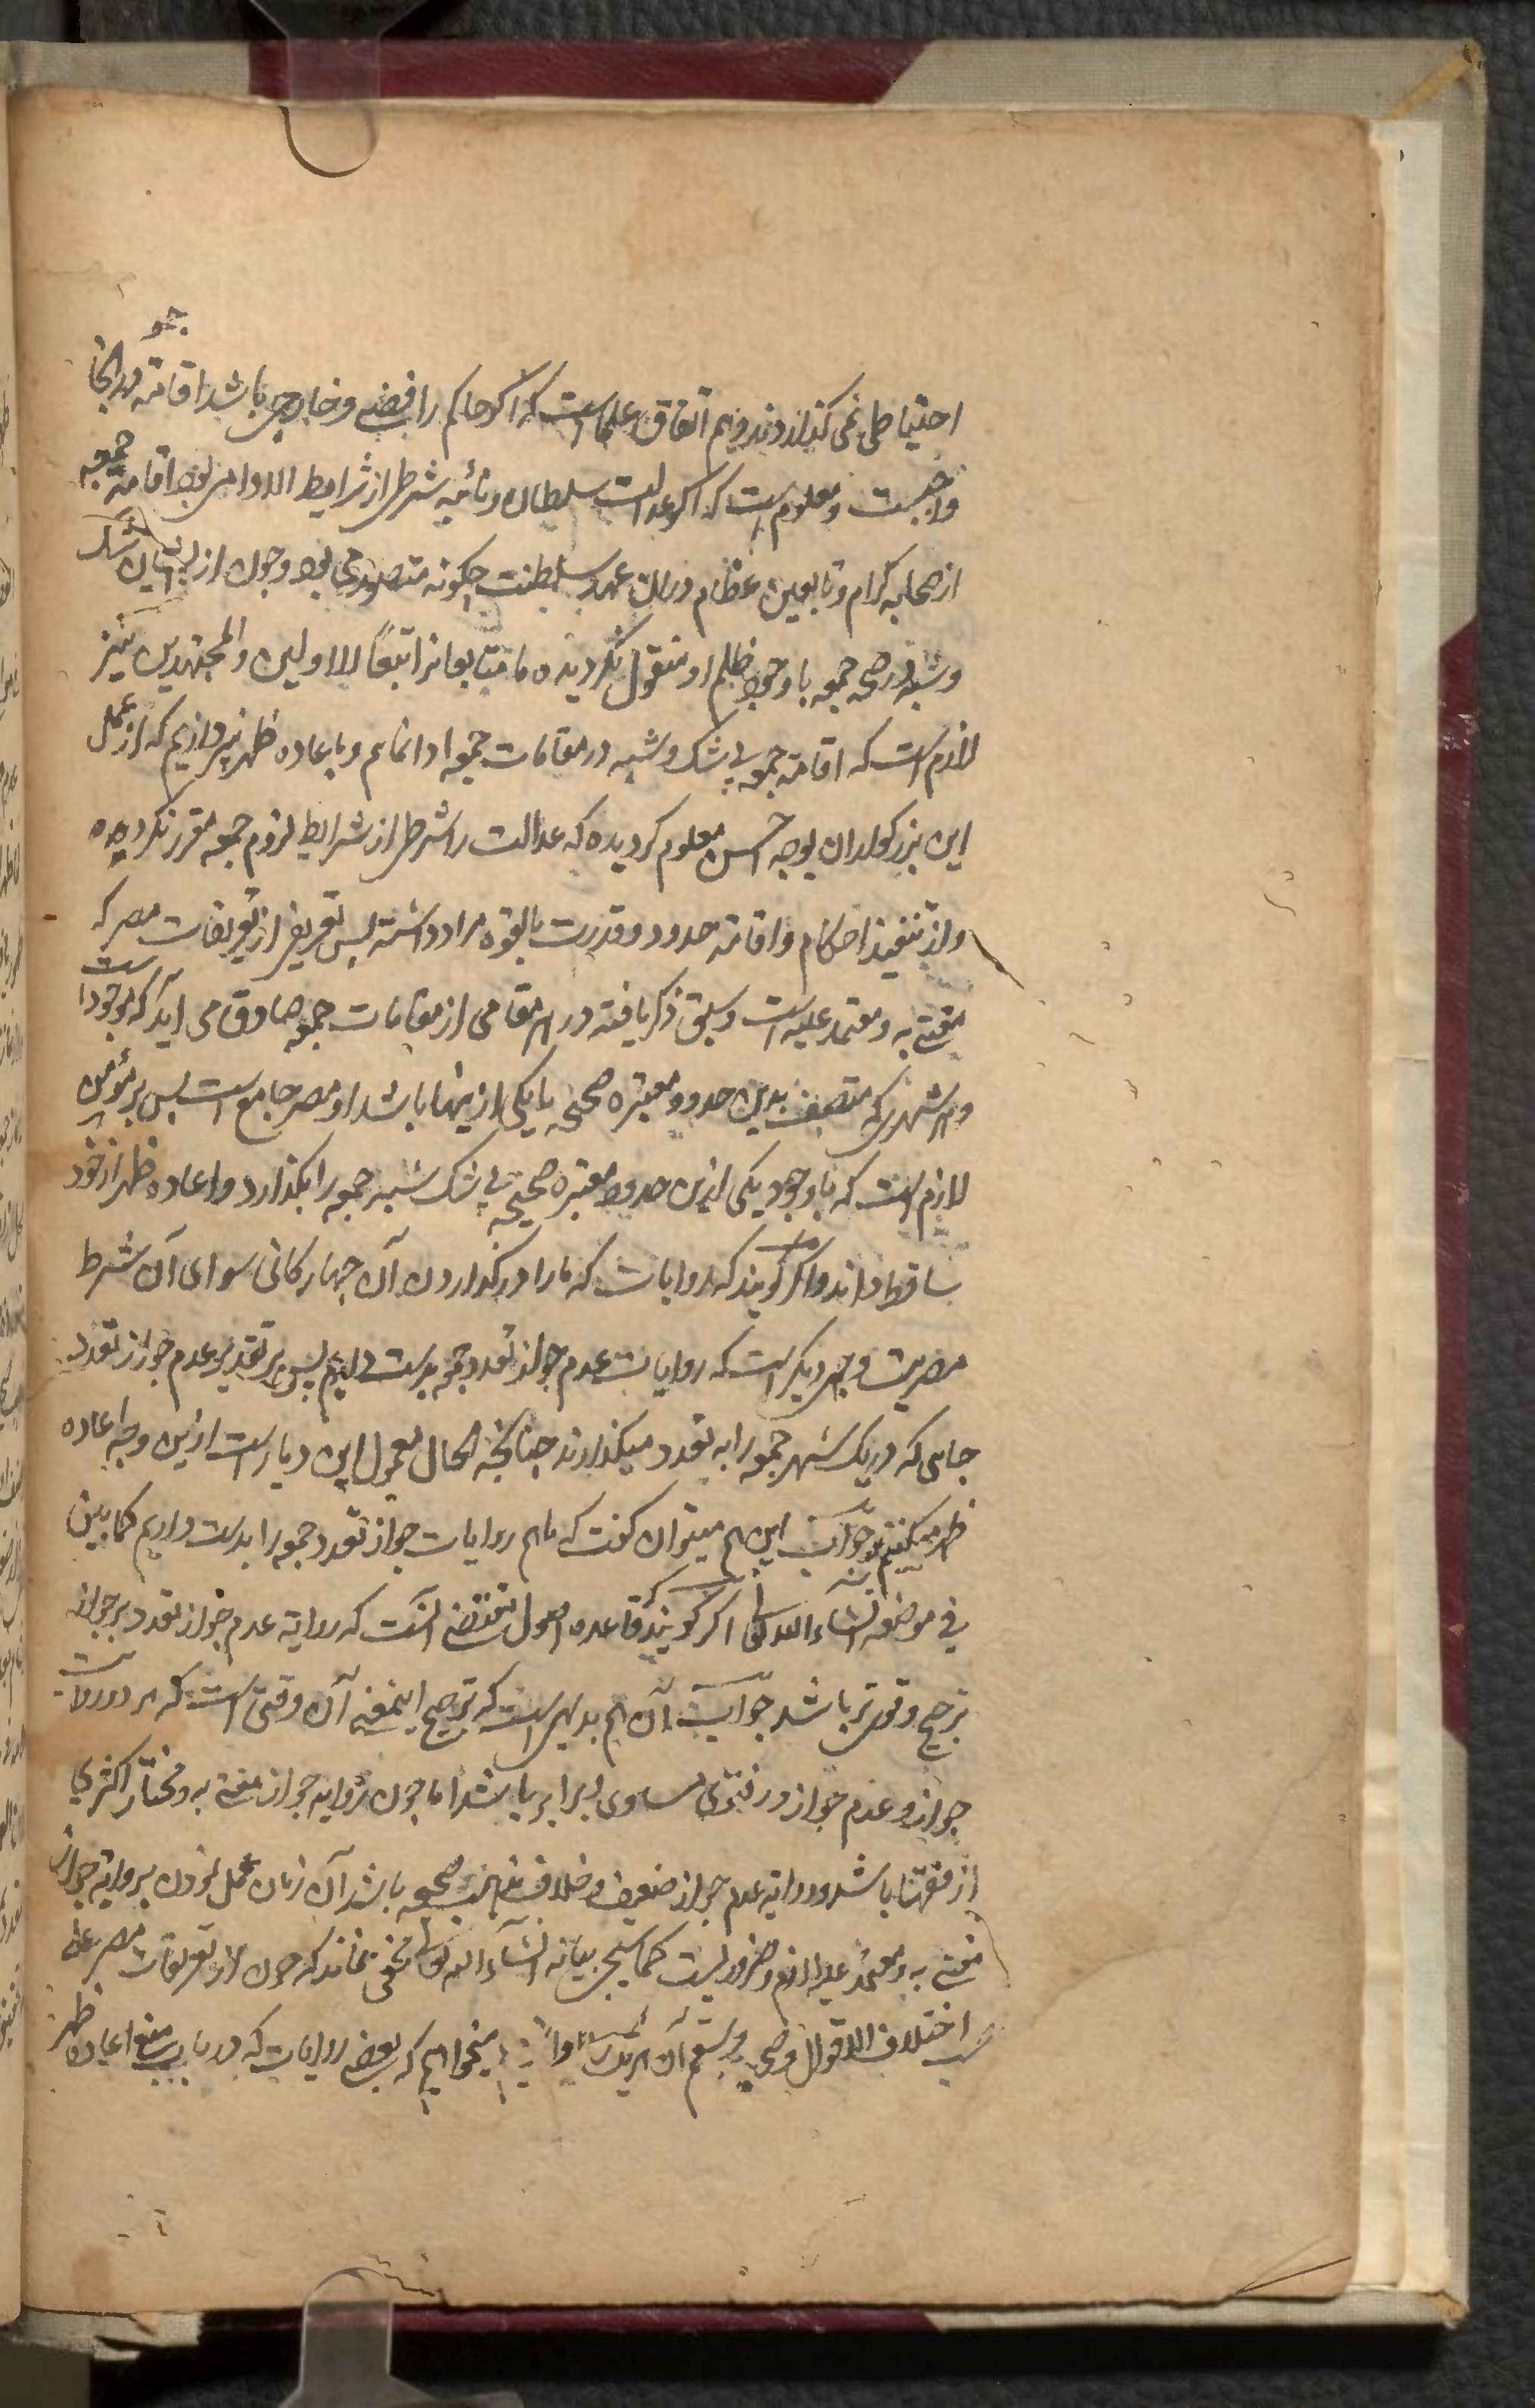 احتیاطی نمی گذاردند و هم اتفاق علماست که اگر حاکم رافضی و خارجی باشد اقامة جمعه درانجا
واجبست و معلوم است که اگر عدالت سلطان و نائبه شرطی از شرایط الادا می بود اقامة جمعه
از صحابه کرام و تابعین عظام دران عهد سلطنت چگونه متصور می بود و چون از ایشان شک
و شبه در صحة جمعه با وجود ظلم او منقول نگردیده ما متابعانرا تبعاً للاولین والمجتهدین نیز
لازم است که اقامة جمعه بی شک و شبه در مقامات جمعه ادا نمایم و باعاده ظهر نپردازیم که از عمل
این بزرگواران بوجه احسن معلوم گردیده که عدالت را شرطی از شرایط لزوم جمعه مقرر نکرده
و از تنفیذ احکام و اقامة حدود قدرت بالقوه مراد داشته پس تعریفی از تعریفات مصر که
مفتی به و معتمد علیه است و سبق ذکر یافته در هر مقامی از مقامات جمعه صادق می آید که موجود است
و هر شهری که متصف بدین حدود معتبره صحیحه یا یکی ازینها باشد او مصر جامع است پس بر مؤمن
لازم است که با وجود یکی ازین حدود معتبره صحیحه بی شک شبه جمعه را بگذارد و اعاده ظهر از خود
ساقط داند و اگر گویند که روایات که مارا در گذاردن آن چهار گانی سوای آن شرط
مصریت وجهی دیگر است که روایات عدم جواز تعدد جمعه بدست داریم پس بر تقدیر عدم جواز تعدد
جاهی که در یک شهر جمعه را به تعدد میگذارند چنانچه الحال معمول این دیار است ازین وجه اعاده
ظهر میکنیم جواب این هم میتوان گفت که ما هم روایات جواز تعدد جمعه را بدست داریم کما یبین
فی موضعه انشاء الله تعالی اگر گویند که قاعده اصول مقتضی آنست که روایة عدم جواز تعدد بر جواز
ترجیح و قوی تر باشد جواب آن هم بدیهی است که ترجیح اینمعنی آن وقتی است که هر دو روایات
جواز و عدم جواز در فتوی مساوی و برابر باشد اما چون روایه جواز مفتی به و مختار اکثری
از فقها باشد و روایة عدم جواز ضعیف و خلاف مذهب صحیحه باشد آن زمان عمل نمودن بروایة جواز
مفتی به و معتمد علیه لازم و ضروریست کما سیجی بیانه انشاء الله تعالی مخفی نماند که چون از تعریفات مصر علی
حسب اختلاف الاقوال وصحی وسقم آن میخواهیم که بعضی روایات که در باب منع اعاده ظهر